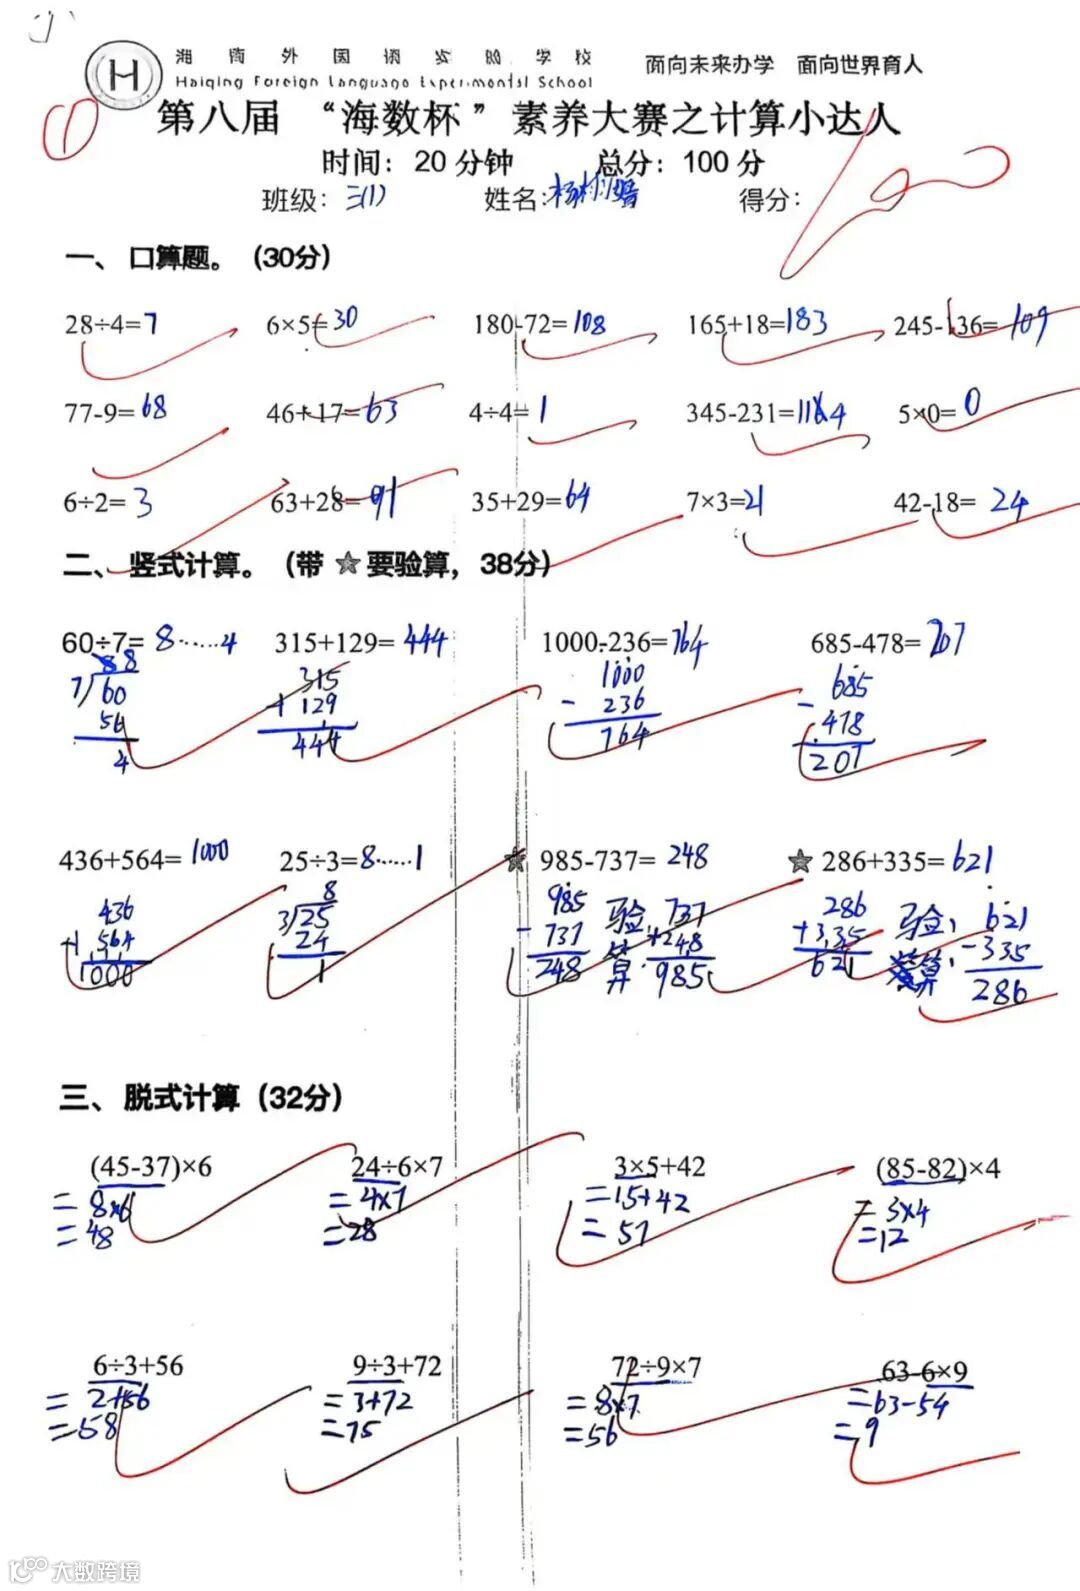 海南外国语实验学校 面向未来办学 面向世界育人
Haiqing Foreign Language Experimental School
第八届 “海数杯” 素养大赛之计算小达人
时间：20分钟 总分：100分
班级：三(1) 姓名： 得分：
一、口算题。（30分）
28÷4=7 6×5=30 180-72=108 165+18=183 245-136=109
77-9=68 46+17=63 4÷4=1 345-231=114 5×0=0
6÷2=3 63+28=91 35+29=64 7×3=21 42-18=24
二、竖式计算。（带★要验算，38分）
60÷7=8……4 315+129=444 1000-236=764 685-478=207
88 315 1000 685
7)60 +129 -236 -478
56 444 764 207
4
436+564=1000 25÷3=8……1 ★985-737=248 ★286+335=621
436 8 985 验 737 286 验： 621
+564 3)25 -737 算： +248 +335 算： -335
1000 24 248 985 621 286
1
三、脱式计算（32分）
(45-37)×6 24÷6×7 3×5+42 (85-82)×4
=8×6 =4×7 =15+42 =3×4
=48 =28 =57 =12
6÷3+56 9÷3+72 72÷9×7 63-6×9
=2+56 =3+72 =8×7 =63-54
=58 =75 =56 =9
大数跨境